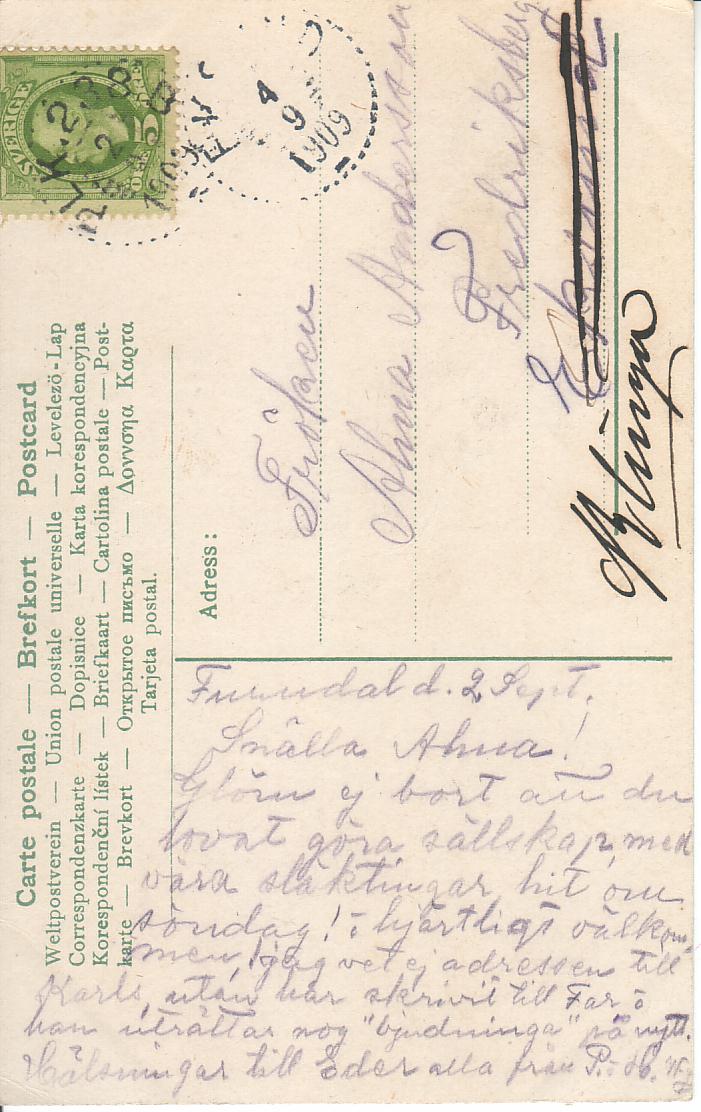 Carte postale — Brefkort — Postcard
Weltpostverein — Union postale universelle — Levelező-Lap
Correspondenzkarte — Dopisnice — Karta korespondencyjna
Korespondenční lístek — Briefkaart — Cartolina postale — Post-
karte — Brevkort — Открытое письмо — Δοννσηα Καρτα
Tarjeta postal.
SVERIGE
5
ÖRE
PLK 2
2 9
1909
4
9
1909
Adress:
Fröken
Alma Andersson
Fredriksberg
Blinga
Furudal d. 2 Sept.
Snälla Alma!
Glöm ej bort att du
lovat göra sällskap med
våra släktingar hit om
söndag! – hjärtligt välkom-
men! jag vet ej adressen till
Karls, utan har skrivit till Far o
han uträttar nog "bjudninga" på nytt.
Hälsningar till Eder alla från P. o H.